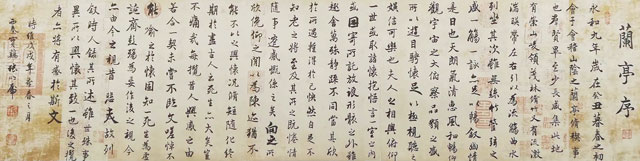 蘭亭序
永和九年歲在癸丑暮春之初
會于會稽山陰之蘭亭脩禊事
也群賢畢至少長咸集此地
有崇山峻領茂林脩竹又有清流激
湍暎帶左右引以為流觴曲水
列坐其次雖無絲竹管弦之
盛一觴一詠亦足以暢敘幽情
是日也天朗氣清惠風和暢仰
觀宇宙之大俯察品類之盛
所以遊目騁懷足以極視聽之
娛信可樂也夫人之相與俯仰
一世或取諸懷抱悟言一室之內
或因寄所託放浪形骸之外雖
趣舍萬殊靜躁不同當其欣
於所遇暫得於己快然自足不
知老之將至及其所之既惓情
隨事遷感慨係之矣向之所
欣俛仰之間以為陳迹猶不
能不以之興懷況脩短隨化終
期於盡古人云死生亦大矣豈
不痛哉每攬昔人興感之由
若合一契未嘗不臨文嗟悼不
能喻之於懷固知一死生為虛
誕齊彭殤為妄作後之視今
亦由今之視昔悲夫故列
敘時人錄其所述雖世殊事
異所以興懷其致一也後之攬
者亦將有感於斯文
時維戊戌年季春月